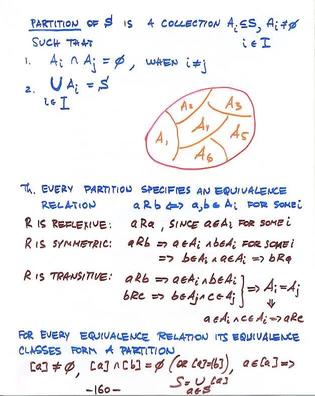 PARTITION OF S IS A COLLECTION Ai ⊆ S, Ai ≠ ∅
SUCH THAT i ∈ I
1. Ai ∩ Aj = ∅, WHEN i ≠ j
2. ∪ Ai = S
i ∈ I
A2 A3
A1 A4 A5
A6
Th. EVERY PARTITION SPECIFIES AN EQUIVALENCE
RELATION aRb <=> a,b ∈ Ai FOR SOME i
R IS REFLEXIVE: aRa, SINCE a ∈ Ai FOR SOME i
R IS SYMMETRIC: aRb => a ∈ Ai ∧ b ∈ Ai FOR SOME i
=> b ∈ Ai ∧ a ∈ Ai => bRa
R IS TRANSITIVE: aRb => a ∈ Ai ∧ b ∈ Ai } => Ai = Aj
bRc => b ∈ Aj ∧ c ∈ Aj
a ∈ Ai ∧ c ∈ Ai => aRc
FOR EVERY EQUIVALENCE RELATION ITS EQUIVALENCE
CLASSES FORM A PARTITION
[a] ≠ ∅, [a] ∩ [b] = ∅ (OR [a]=[b]), a ∈ [a] =>
-160- S = ∪ [a]
a ∈ S